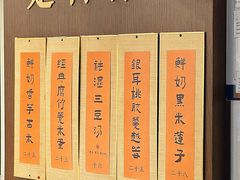 鮮奶黑米蓮子
二十八
銀耳桃膠
二十五
祛湿三豆沙
十六
經典腐竹薏米蛋
二十三
鮮奶香芋西米
二十五